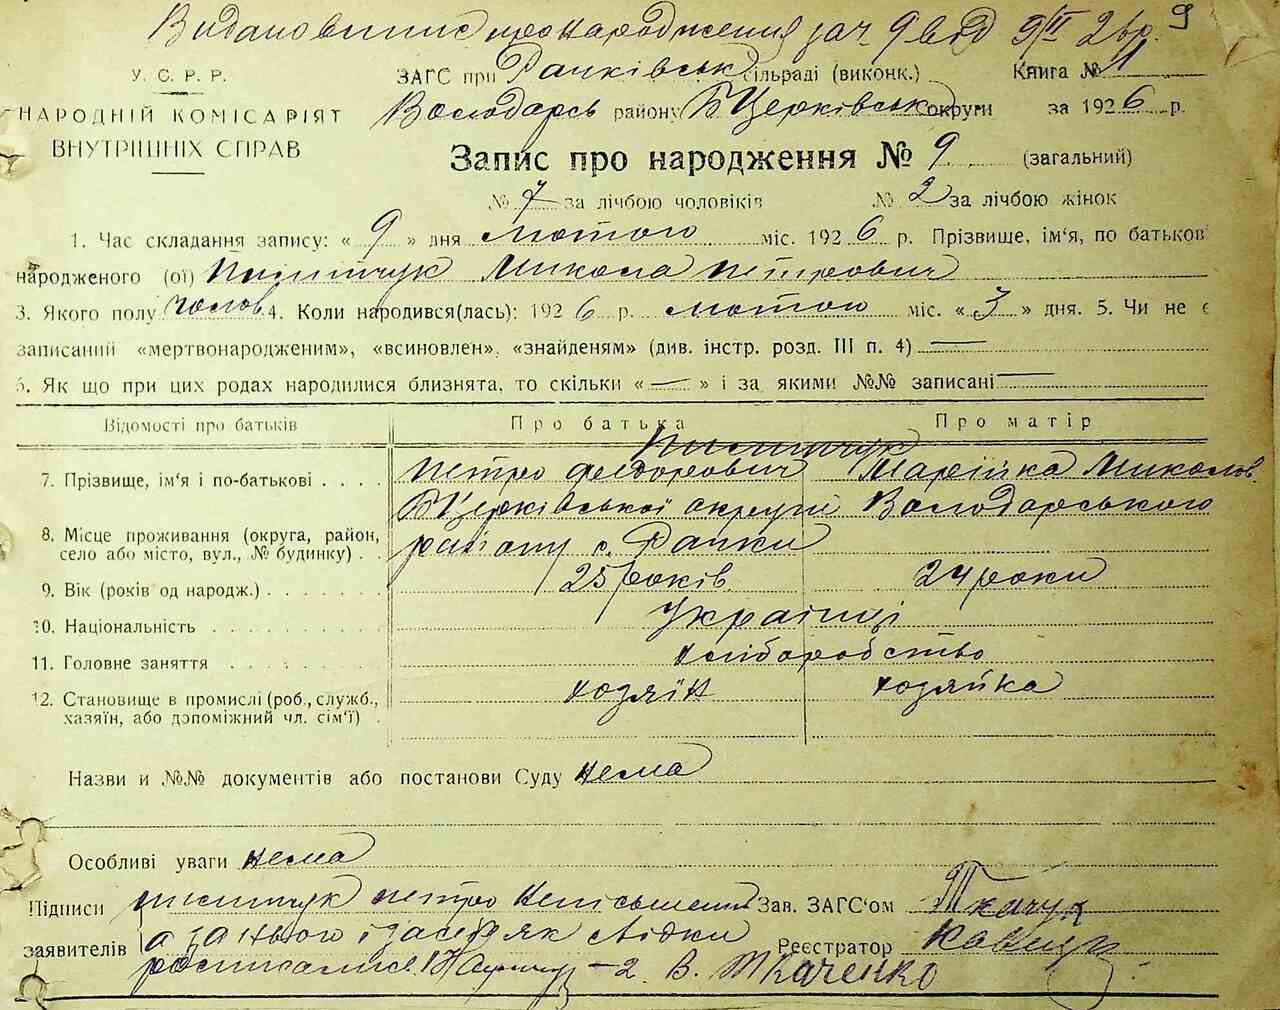 Видано виписъ про народження за ч 9 від 9/II 26р. 9
У. С. Р. Р.
НАРОДНІЙ КОМІСАРІЯТ
ВНУТРІШНІХ СПРАВ
ЗАГС при Рачківськ сільраді (виконк.) Книга № 1
Володарсь району БЦерківськ округи за 1926 р.
Запис про народження № 9 (загальний)
№ 7 за лічбою чоловіків № 2 за лічбою жінок
1. Час складання запису: « 9 » дня лютого міс. 1926 р. Прізвище, ім'я, по батькові
народженого (ої) Микола Петрович
3. Якого полу чолов. 4. Коли народився(лась): 1926 р. лютого міс. « 3 » дня. 5. Чи не є
записаний «мертвонародженим», «всиновлен», «знайденям» (див. інстр. розд. III п. 4) —
6. Як що при цих родах народилися близнята, то скільки « — » і за якими №№ записані —
Відомості про батьків Про батька Про матір
7. Прізвище, ім'я і по-батькові . . . . Петро Федорович Марійка Миколов.
8. Місце проживання (округа, район, село або місто, вул., № будинку) . . БЦерківської округи Володарського
району с. Рачки
9. Вік (років од народж.) . . . . . . . 25 років. 24 роки
10. Національність . . . . . . . . . . Українці
11. Головне заняття . . . . . . . . хліборобство
12. Становище в промислі (роб., служб., хазяїн, або допоміжний чл. сім'ї) . хозяїн хозяйка
Назви и №№ документів або постанови Суду нема
Особливі уваги нема
Підписи Петро Неписьменний Зав. ЗАГС'ом Ткачук
заявителів а за нього свідки Реєстратор
росписались 1 2. В. Ткаченко